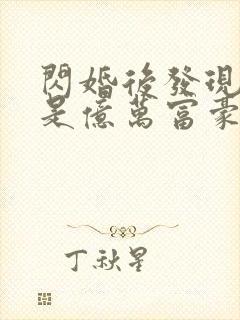 閃婚後發現
是億萬富豪
丁秋星